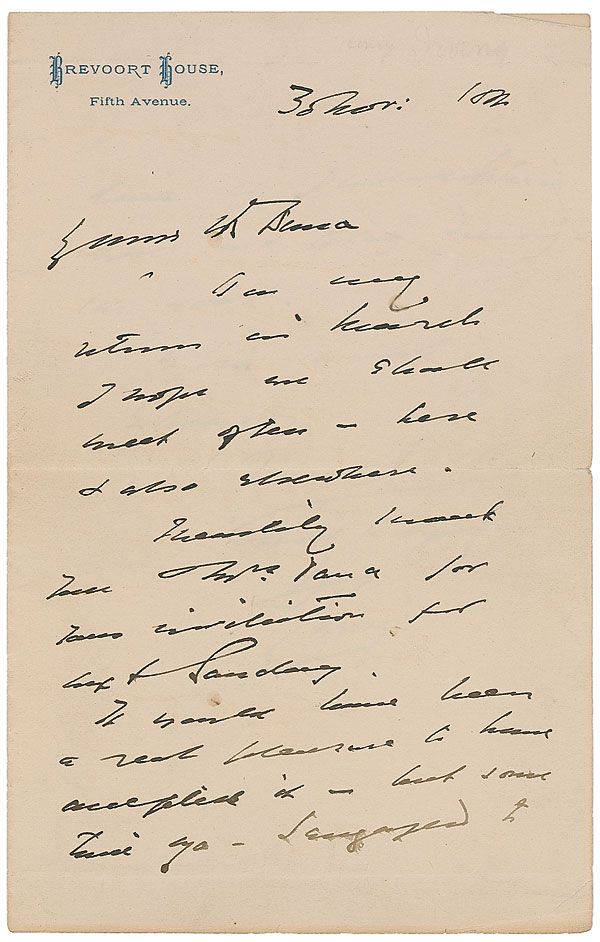 BREVOORT HOUSE,
Fifth Avenue.
30 Nov:
Dana
On my
return in March
I hope we shall
meet often - here
& also elsewhere.
Heartily I thank
you & Mrs. Dana for
your invitation for
next Sunday.
It would have been
a real pleasure to have
accepted it - but some
time ago - I engaged to